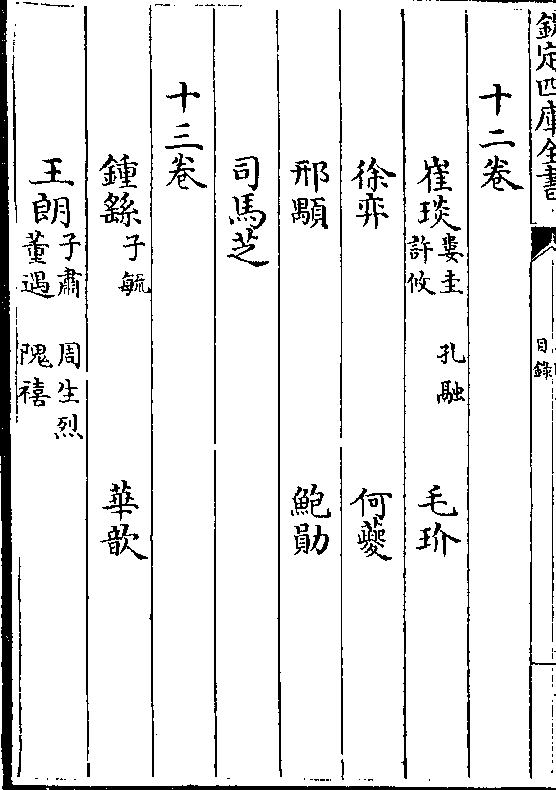 欽定四庫全書
目錄
十二卷
崔琰 婁圭 孔融 許攸 毛玠
徐弈 何夔
邢顒 鮑勛
司馬芝
十三卷
鍾繇 子毓 華歆
王朗 子肅 周生烈 董遇 隗禧